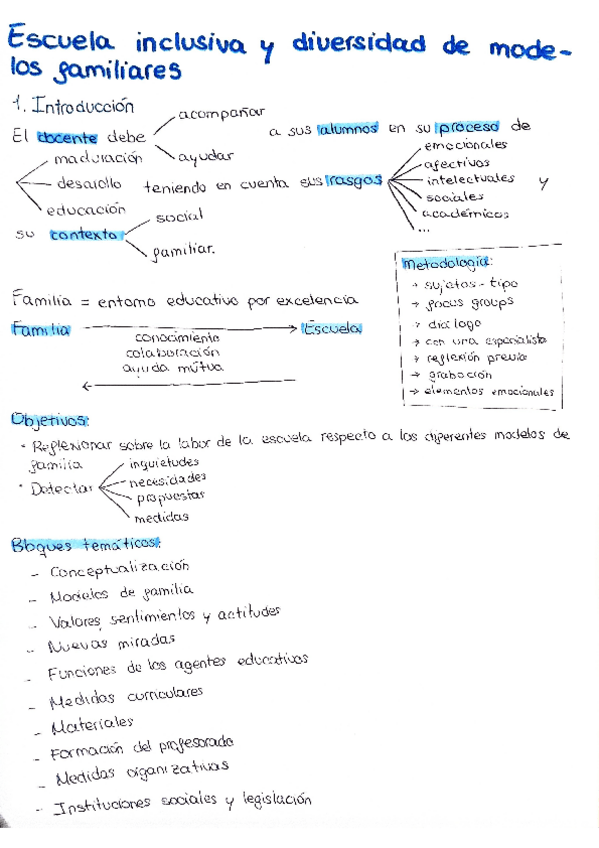 Escuela inclusiva y diversidad de mode-
los familiares
1. Introducción
acompañar
El docente debe
ayudar
a sus alumnos en su proceso de
maduración
desarollo
educación
teniendo en cuenta sus rasgos
emocionales
afectivos
intelectuales
sociales
académicos
...
y
su contexto
social
familiar.
Familia = entorno educativo por excelencia
Familia → Escuela
conocimiento
colaboración
ayuda mútua
←
Metodología:
→ sujetos-tipo
→ focus groups
→ diálogo
→ con una especialista
→ reflexión previa
→ grabación
→ elementos emocionales
Objetivos:
· Reflexionar sobre la labor de la escuela respecto a los diferentes modelos de
familia
· Detectar
inquietudes
necesidades
propuestas
medidas
Bloques temáticos:
- Conceptualización
- Modelos de familia
- Valores, sentimientos y actitudes
- Nuevas miradas
- Funciones de los agentes educativos
- Medidas curriculares
- Materiales
- Formación del profesorado
- Medidas organizativas
- Instituciones sociales y legislación